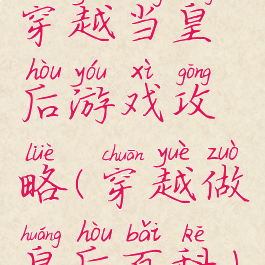 穿越当皇
hòu yóu xì gōng
后游戏攻
lüè chuān yuè zuò
略(穿越做
huáng hòu bǎi kē
皇后百科)